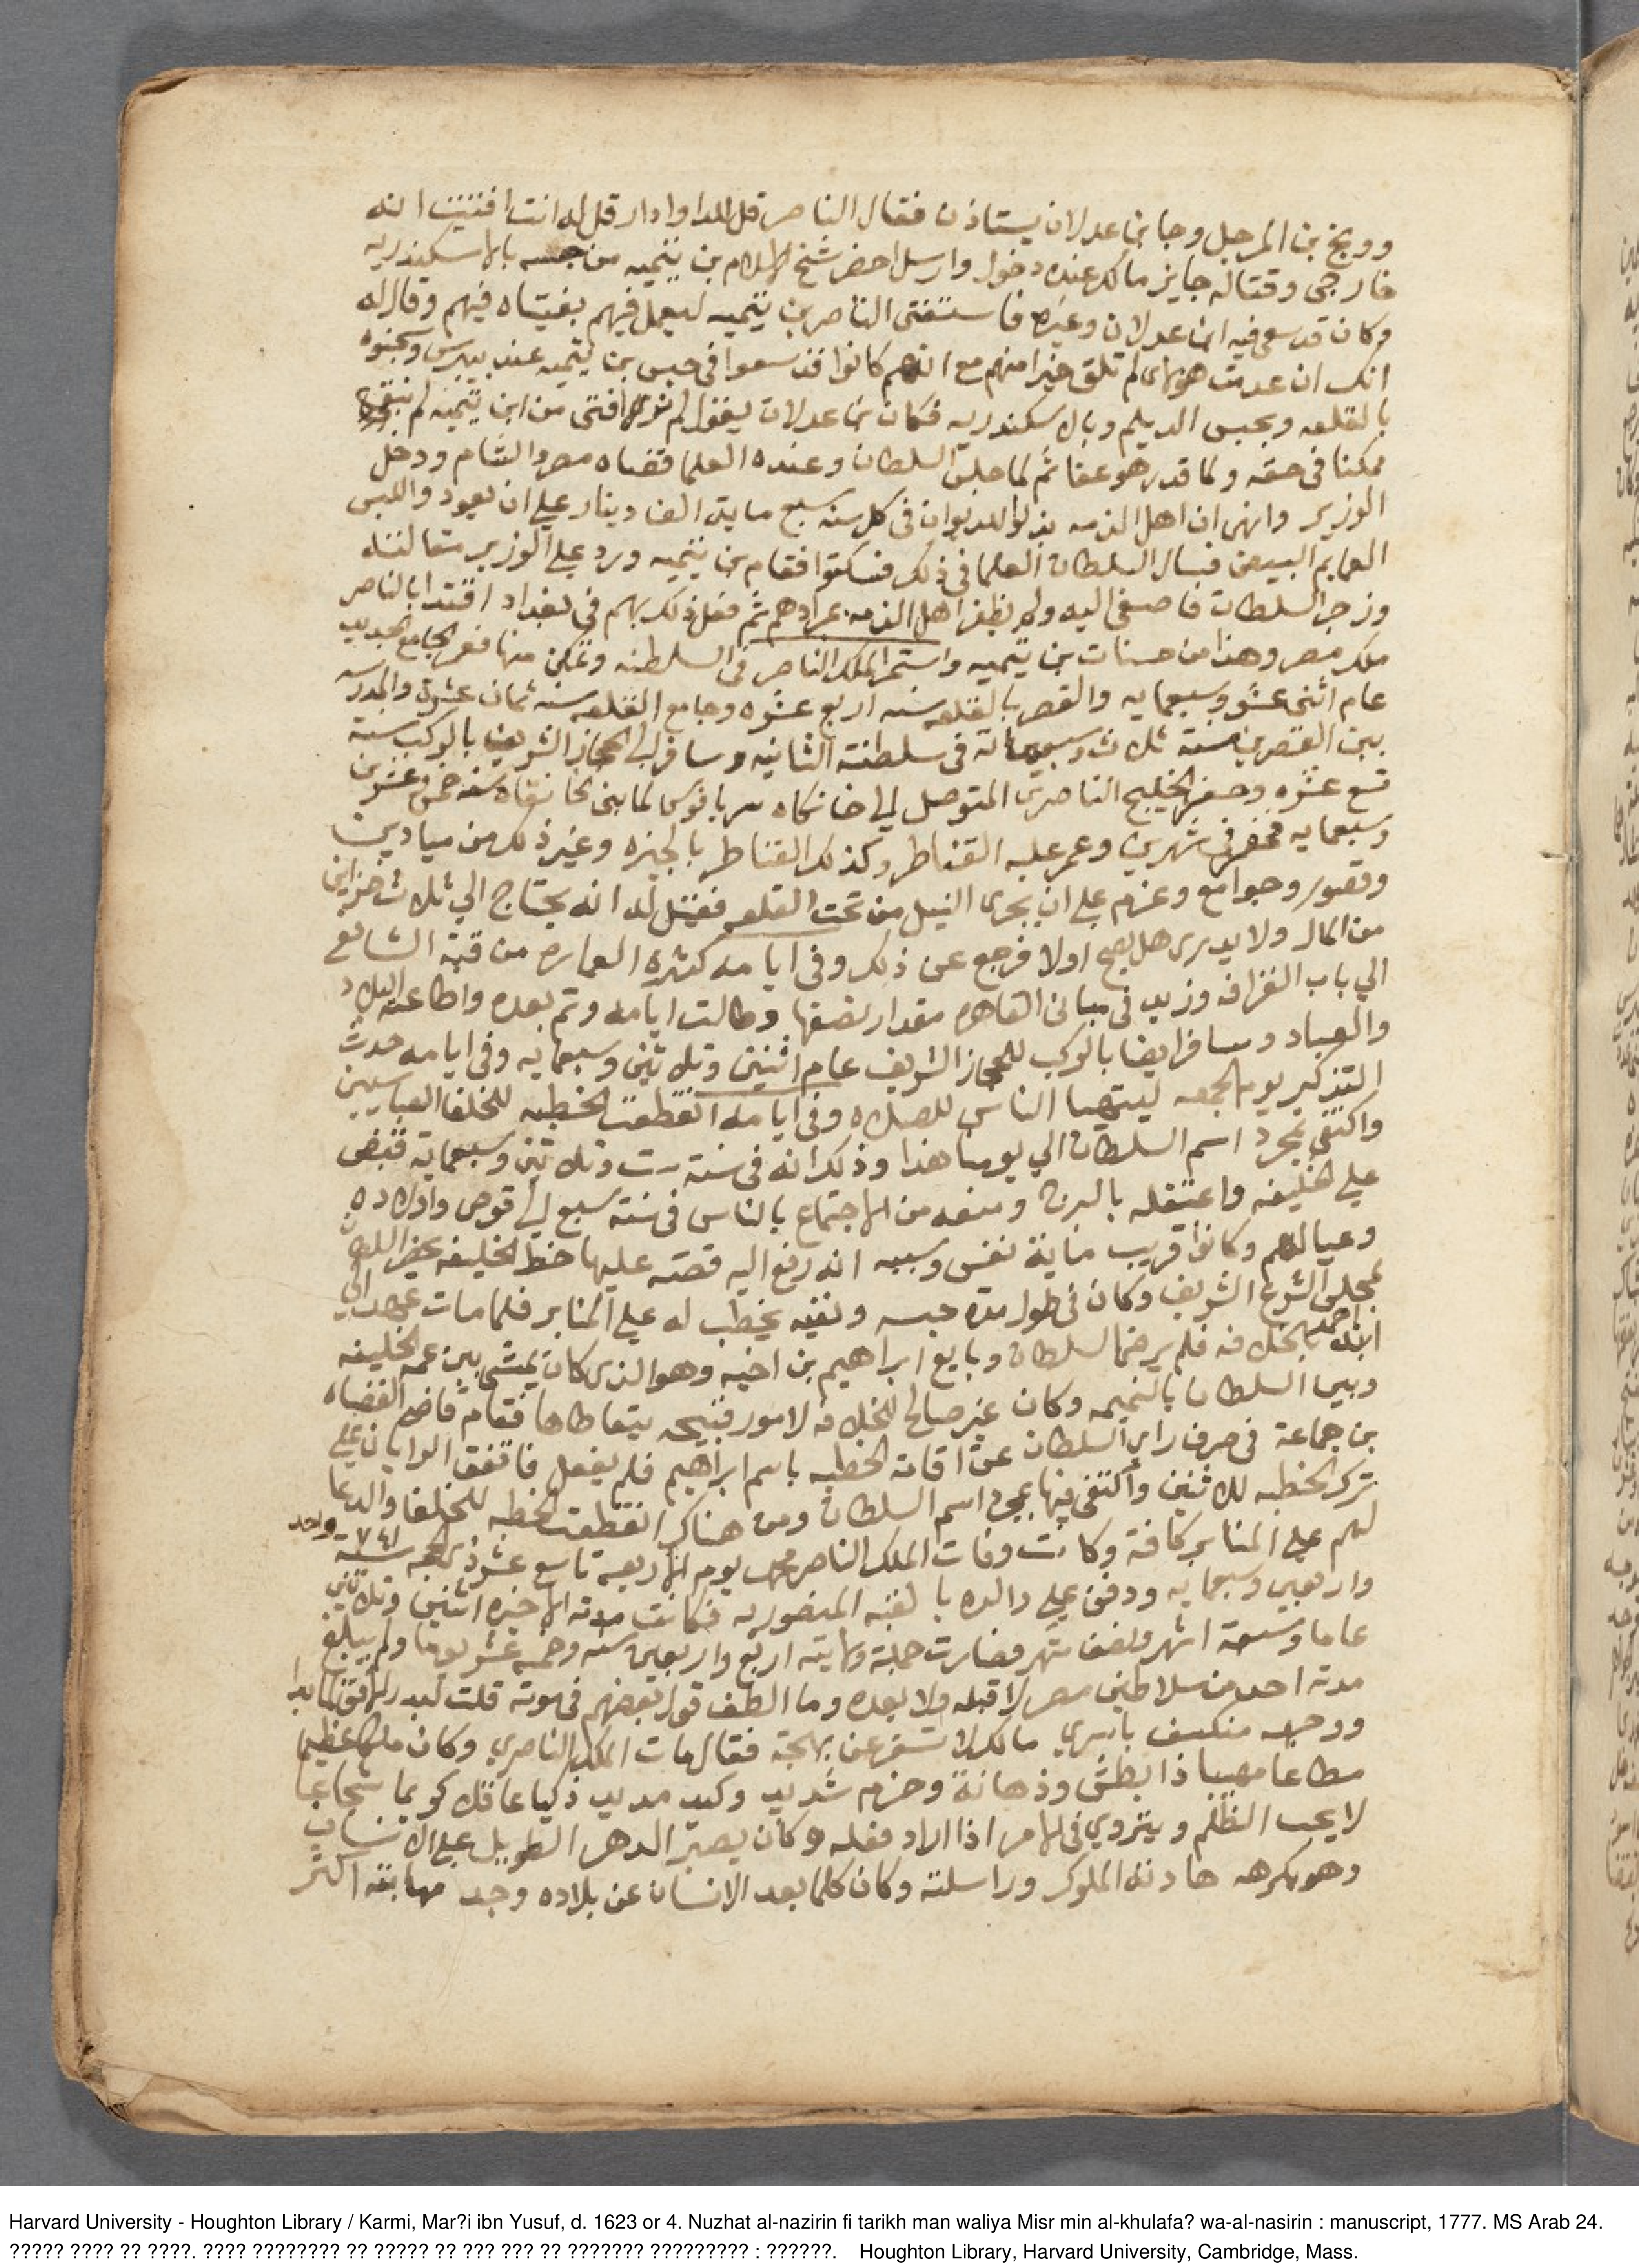 ووبخ بن المرجل وجا بن عدلان يستاذن فقال الناصر قل للدوادار قل له انت افتيت انه
خارجي وقتاله جايز مالك عنده دخول وارسل احضر شيخ الاسلام بن تيميه من حبسه بالاسكندريه
وكان قد سعى فيه ابن عدلان وغيره فاستفتى الناصر بن تيميه ليعمل فيهم بفتياه فيهم وقال له
انك ان عدمت هولاي لم تلق خيرا منهم مع انهم كانوا قد سعوا في حبس بن تيميه عند بيبرس وسجنوه
بالقلعه وبحبس الديلم وبالاسكندريه فكان بن عدلان يقول لم نرى افتى من ابن تيميه لم نبقي
ممكنا في حقه ولما قدر هو عفا ثم لما جلس السلطان وعنده العلما قضاه مصر والشام ودخل
الوزير وانهى ان اهل الذمه بذلوا للديوان في كل سنه سبع ماية الف دينار على ان يعود والبس
العمايم البيض فسال السلطان العلما في ذلك فسكتوا فقام بن تيميه ورد على الوزير مقالته
وزجر السلطان فاصغى اليه ولم يظفر اهل الذمه بمرادهم ثم فعل ذلك بهم في بغداد اقتدا بالناصر
ملك مصر وهذا من حسنات بن تيميه واستمر الملك الناصر في السلطنه وتمكن منها فعمر الجامع الجديد
عام اثنى عشر وسبعمايه والقصر بالقلعه سنه اربع عشره وجامع القلعه سنه ثمان عشرة والمدرسه
بين القصرين سنة ثلاث وسبعماية في سلطنته الثانيه وسافر الي الحجاز الشريف بالركب سنة
تسع عشره وحفر الخليج الناصري المتوصل الي خانكاه سرياقوس لما بنى الخانقاه سنه خمس وعشرين
وسبعمايه فحفر في شهرين وعمر عليه القناطر وكذلك القناطر بالجيزه وغير ذلك من ميادين
وقصور وجوامع وعزم على ان يجرى النيل من تحت القلعه فقيل له انه يحتاج الي ثلاث خزاين
من المال ولا يدرى هل يصح اولا فرجع عن ذلك وفي ايامه كثره العماره من قبة الشافعي
الي باب القرافه وزيد في مباني القاهره مقدار نصفها وطالت ايامه وتم بعده واطاعته البلاد
والعباد وسافر ايضا بالركب للحجاز الشريف عام اثنين وثلاثين وسبعمايه وفي ايامه حدث
التذكير يوم الجمعه ليتهيا الناس للصلاه وفي ايامه انقطعت الخطبه للخلفا العباسيين
واكتفى بمجرد اسم السلطان الي يومنا هذا وذلك انه في سنة ست وثلاثين وسبعماية قبض
على الخليفه واعتقله بالبرج ومنعه من الاجتماع بالناس في سنة سبع الي قوص واولاده
وعيالهم وكانوا قريب ماية نفس وسببه انه رفع اليه قصة عليها خط الخليفه يحضر السلطان
لمجلس الشرع الشريف وكان في طول مدة حبسه ونفيه يخطب له على المنابر فلما مات عهد الي
ابنه احمد بالخلافه فلم يرض السلطان وبايع ابراهيم بن اخيه وهو الذى كان يمشي بين عمه الخليفه
وبين السلطان بالنميمه وكان غير صالح للخلافه لامور قبيحه يتعاطاها فقام قاضي القضاه
بن جماعة في صرف راى السلطان عن اقامة الخطبه باسم ابراهيم فلم يفعل فاتفق الرايان على
ترك الخطبه للاثنين واكتفى فيها بمجرد اسم السلطان ومن هناك انقطعت الخطبه للخلفا والدعا
لهم على المنابر كافة وكانت وفات الملك الناصر محمد يوم الاربعة تاسع عشر ذي الحجه سنة ٧٤١ واحد
واربعين وسبعمايه ودفن على والده بالقبه المنصوريه فكانت مدته الاخيره اثنين وثلاثين
عاما وسبعة اشهر ونصف شهر فصارت جملة ولايته اربع واربعين سنه وخمسه عشر يوما ولم يبلغ
مدته احد من سلاطين مصر لا قبله ولا بعده وما الطف قول بعضهم في موته قلت لبدر الافق لما بدا
ووجهه منكسف باسري مالك لا تسفر عن بهجته فقال مات الملك الناصري وكان ملكا عظيما
مطاعا مهيبا ذا بطش وذهانة وحزم شديد وكيد مديد ذكيا عاقلا كريما شجاعا
لا يحب الظلم ويتروي في الامر اذا اراد فعله وكان يصبر الدهر الطويل على الانسان
وهو يكرهه هادنه الملوك وراسلته وكان كلما بعد الانسان عن بلاده وجد مهابته اكثر
Harvard University - Houghton Library / Karmi, Mar?i ibn Yusuf, d. 1623 or 4. Nuzhat al-nazirin fi tarikh man waliya Misr min al-khulafa? wa-al-nasirin : manuscript, 1777. MS Arab 24.
????? ???? ?? ????. ???? ???????? ?? ????? ?? ??? ??? ?? ??????? ????????? : ??????. Houghton Library, Harvard University, Cambridge, Mass.